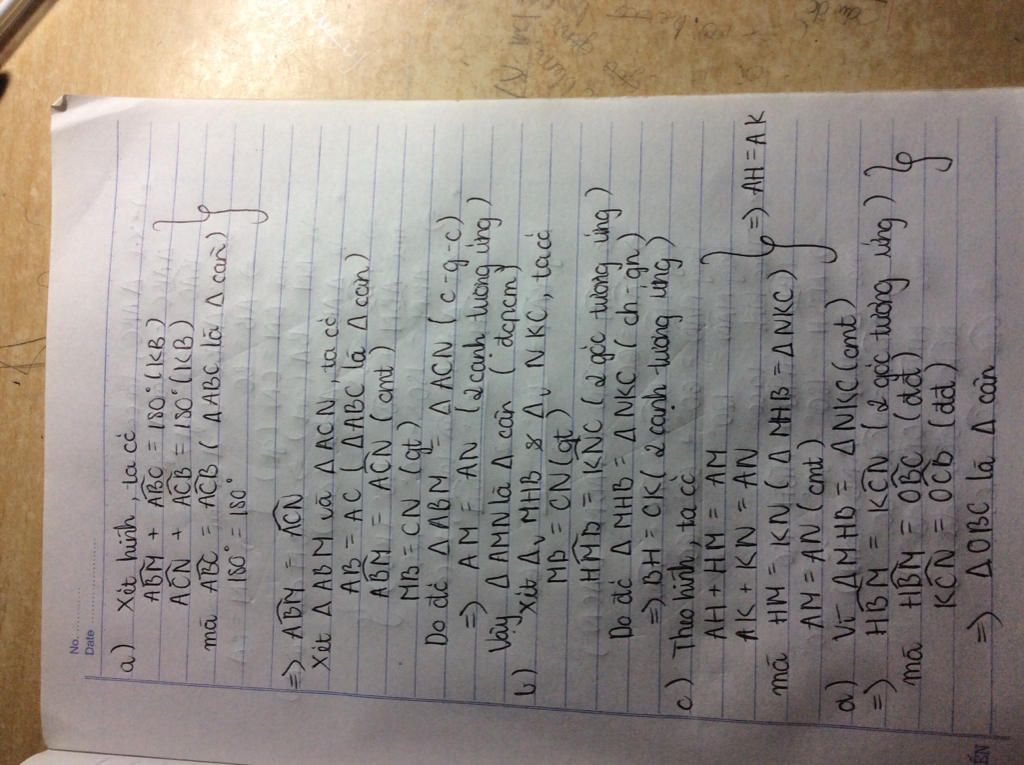 No. ............
Date
a) Xét hình, ta có
ABM + ABC = 180° (KB)
ACN + ACB = 180° (KB)
mà ABC = ACB (Δ ABC là Δ cân)
180° = 180°
=> ABM = ACN
Xét Δ ABM và Δ ACN, ta có
AB = AC (Δ ABC là Δ cân)
ABM = ACN (cmt)
MB = CN (gt)
Do đó Δ ABM = Δ ACN (c-g-c)
=> AM = AN (2 cạnh tương ứng)
Vậy Δ AMN là Δ cân (đcpcm)
b) Xét Δv MHB & Δv NKC, ta có
MB = CN (gt)
HMB = KNC (2 góc tương ứng)
Do đó Δ MHB = Δ NKC (ch-gn)
=> BH = CK (2 cạnh tương ứng)
c) Theo hình, ta có
AH + HM = AM
AK + KN = AN
mà HM = KN (Δ MHB = Δ NKC) => AH = AK
AM = AN (cmt)
d) Vì Δ MHB = Δ NKC (cmt)
=> HBM = KCN (2 góc tương ứng)
mà HBM = OBC (đđ)
KCN = OCB (đđ)
=> Δ OBC là Δ cân